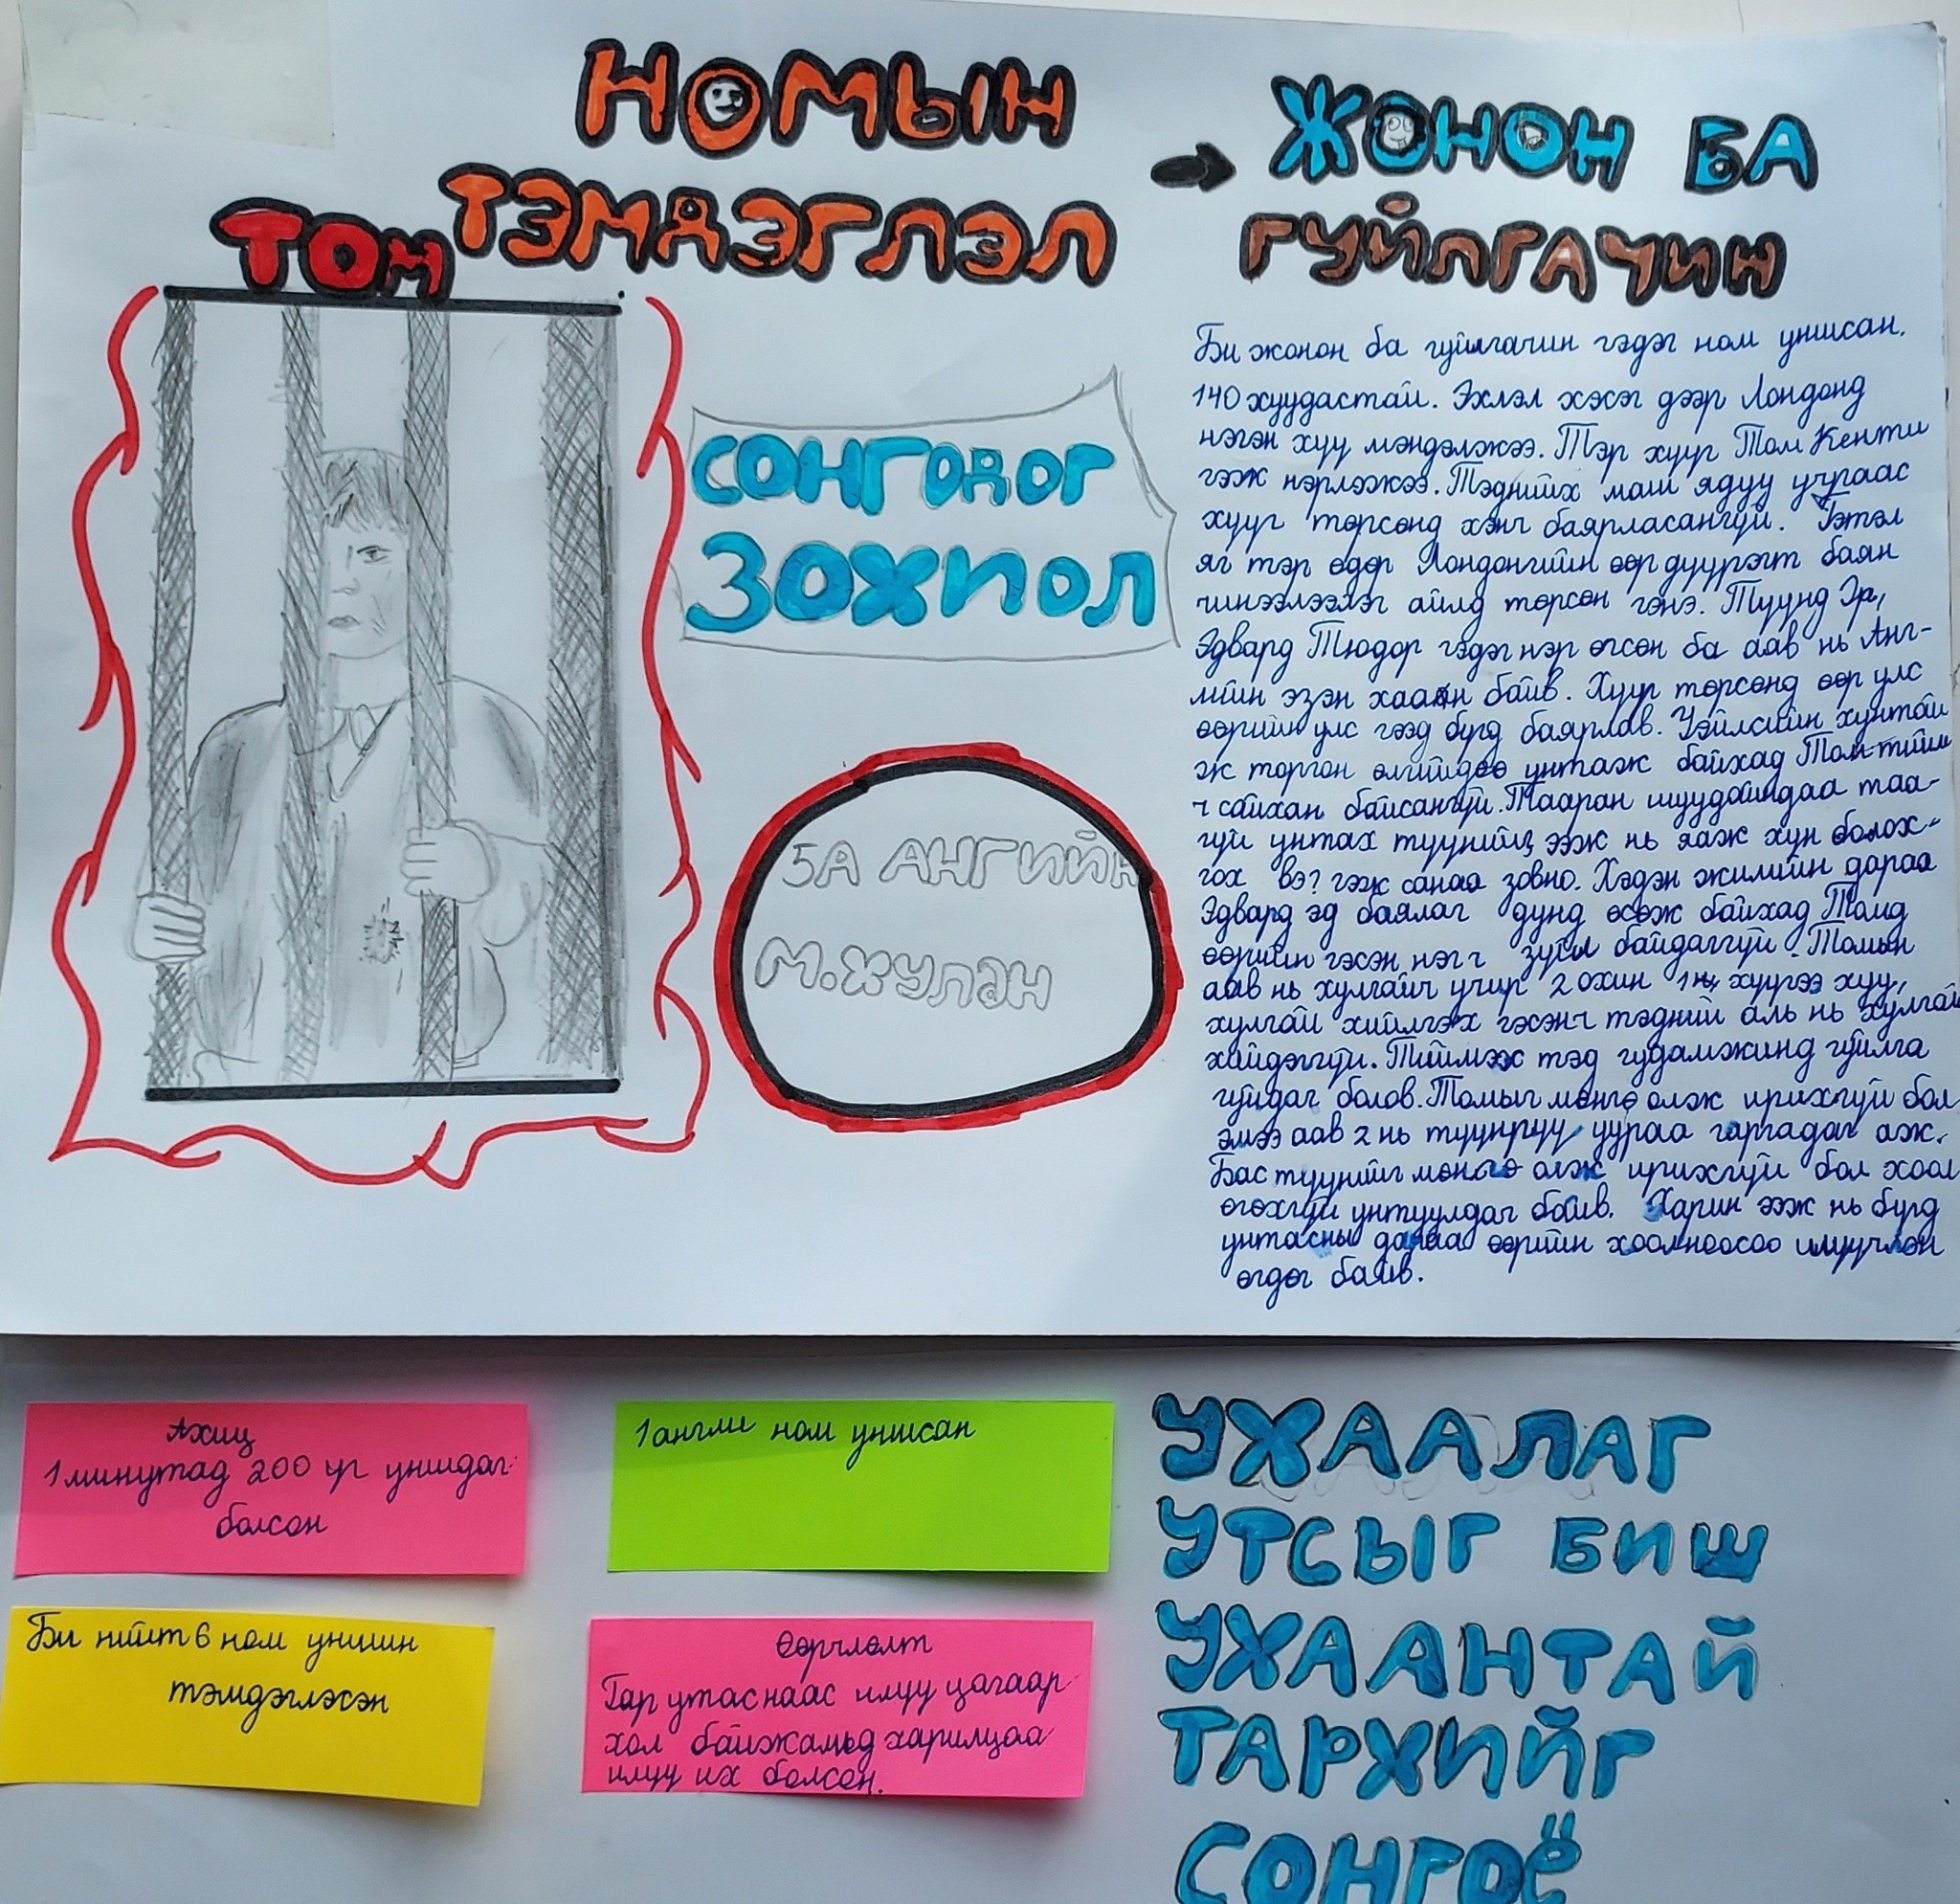 НОМЫН
ТЭМДЭГЛЭЛ
ЖОНОН БА
ГУЙЛГАЧИН
ТОМ
СОНГОДОГ
ЗОХИОЛ
5А АНГИЙН
М.ХУЛАН
Би жонон ба гуйлгачин гэдэг ном уншсан.
140 хуудастай. Эхлэл хэсэг дээр Лондонд
нэгэн хүү мэндэлжээ. Тэр хүүг Том Кенти
гэж нэрлэжээ. Тэднийх маш ядуу учраас
хүүг төрсөнд хэнч баярласангүй. Гэтэл
яг тэр өдөр Лондонгийн өөр дүүрэгт баян
чинээлээлэг айлд төрсөн гэнэ. Түүнд Эр,
Эдвард Тюдор гэдэг нэр өгсөн ба аав нь Анг-
лийн эзэн хаан байв. Хүүг төрсөнд өөр улс
өөрийн улс гээд бүгд баярлав. Уэйлсийн хунтай
ж торгон өлгийдөө унтаж байхад Том тийм
ч сайхан байсангүй. Тааран шуудайндаа таа-
гүй унтах түүнийг ээж нь яаж хүн болох-
гох вэ? гэж санаа зовно. Хэдэн жилийн дараа
Эдвард эд баялаг дунд өсөж байхад Томд
өөрийн гэсэн нэг ч зүйл байдаггүй. Томын
аав нь хулгайч учир 2 охин 1 хүүгээ хуу,
хулгай хийлгэх гэсэнч тэдний аль нь хулгай
хийдэггүй. Тиймээс тэд гудамжинд гуйлга
гуйдаг болов. Томыг мөнгө олж ирэхгүй бол
эмээ аав 2 нь түүнрүү уураа гаргадаг аж.
Бас түүнийг мөнгө олж ирихгүй бол хоол
өгөхгүй унтуулдаг байв. Харин ээж нь бүгд
унтасны дараа өөрийн хоолноосоо илүүчлэн
өгдөг байв.
Ахиц
1 минутад 200 үг уншдаг
болсон
1 англи ном уншсан
Би нийт 6 ном уншин
тэмдэглэсэн
Өөрчлөлт
Гар утаснаас илүү цагаар
хол байж амьд харилцаа
илүү их болсон.
УХААЛАГ
УТСЫГ БИШ
УХААНТАЙ
ТАРХИЙГ
СОНГОЁ